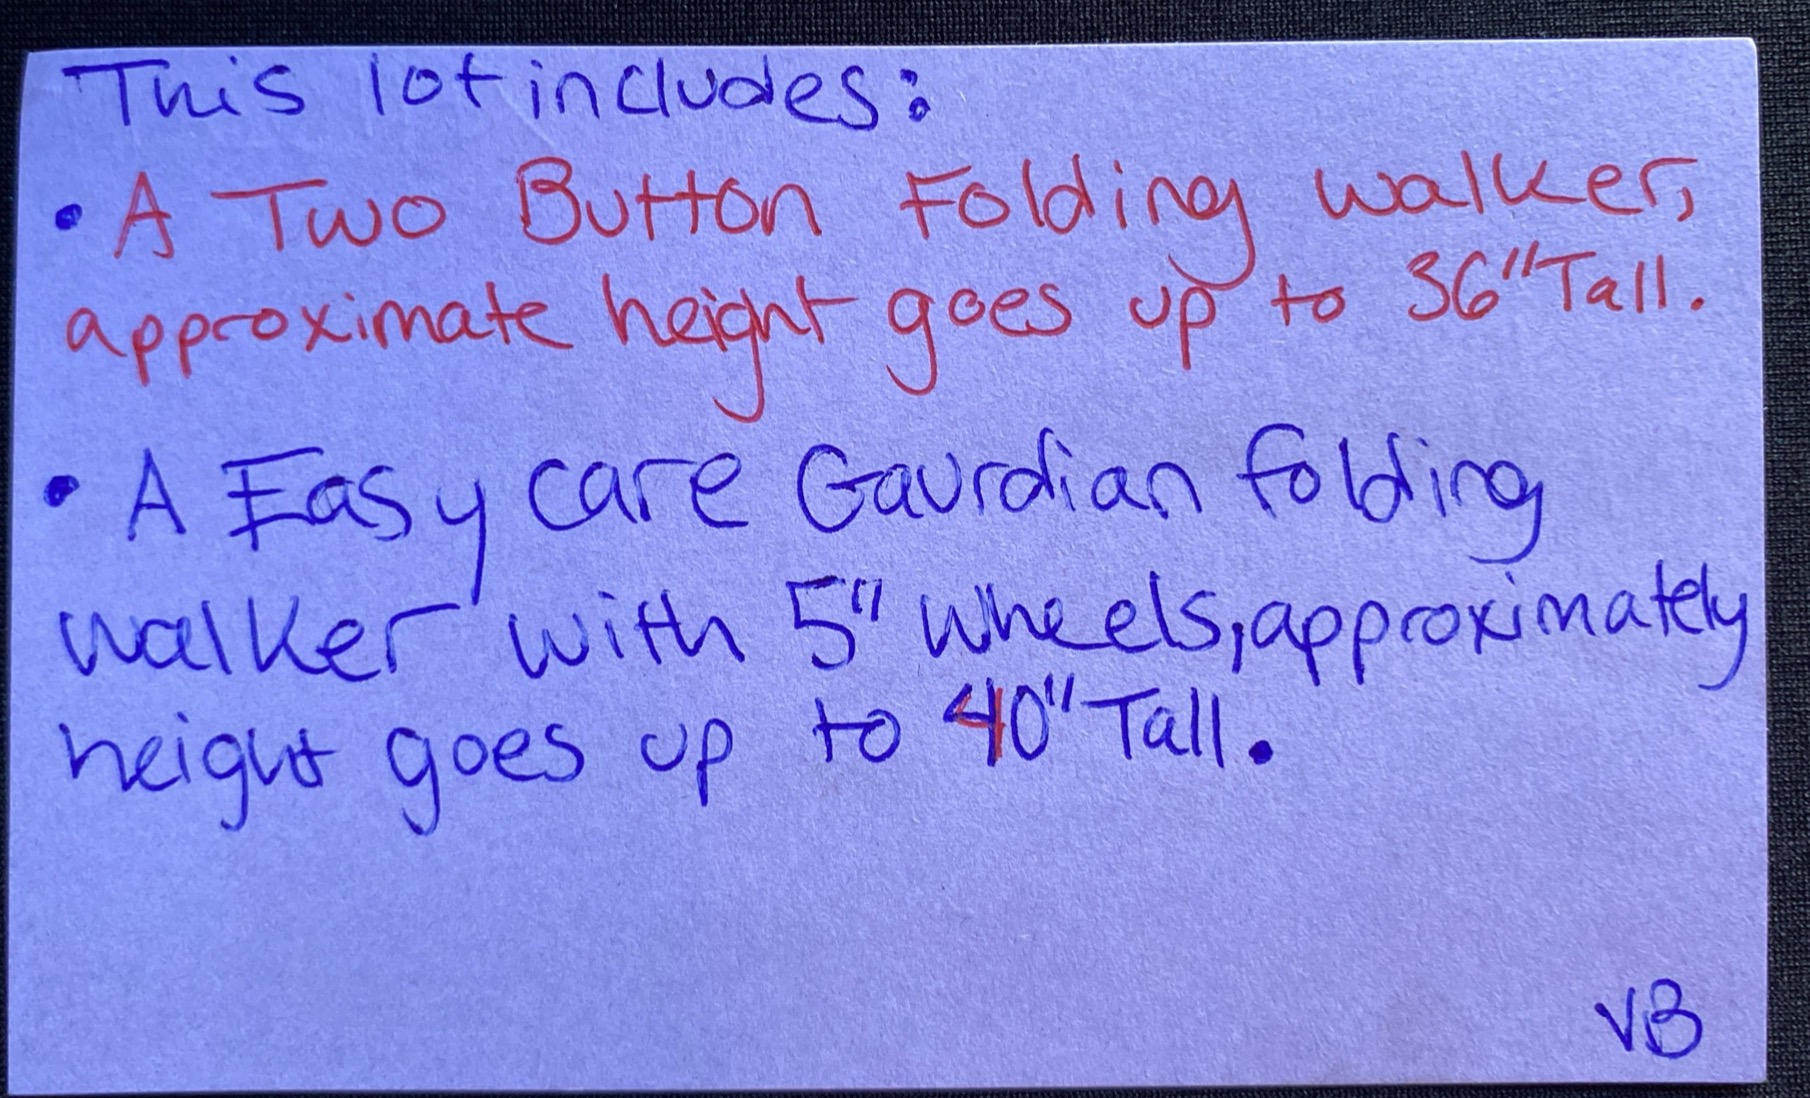 This lot includes:
• A Two Button Folding walker,
approximate height goes up to 36" Tall.
• A Easy care Gaurdian folding
walker with 5" wheels, approximately
height goes up to 40" Tall.
VB